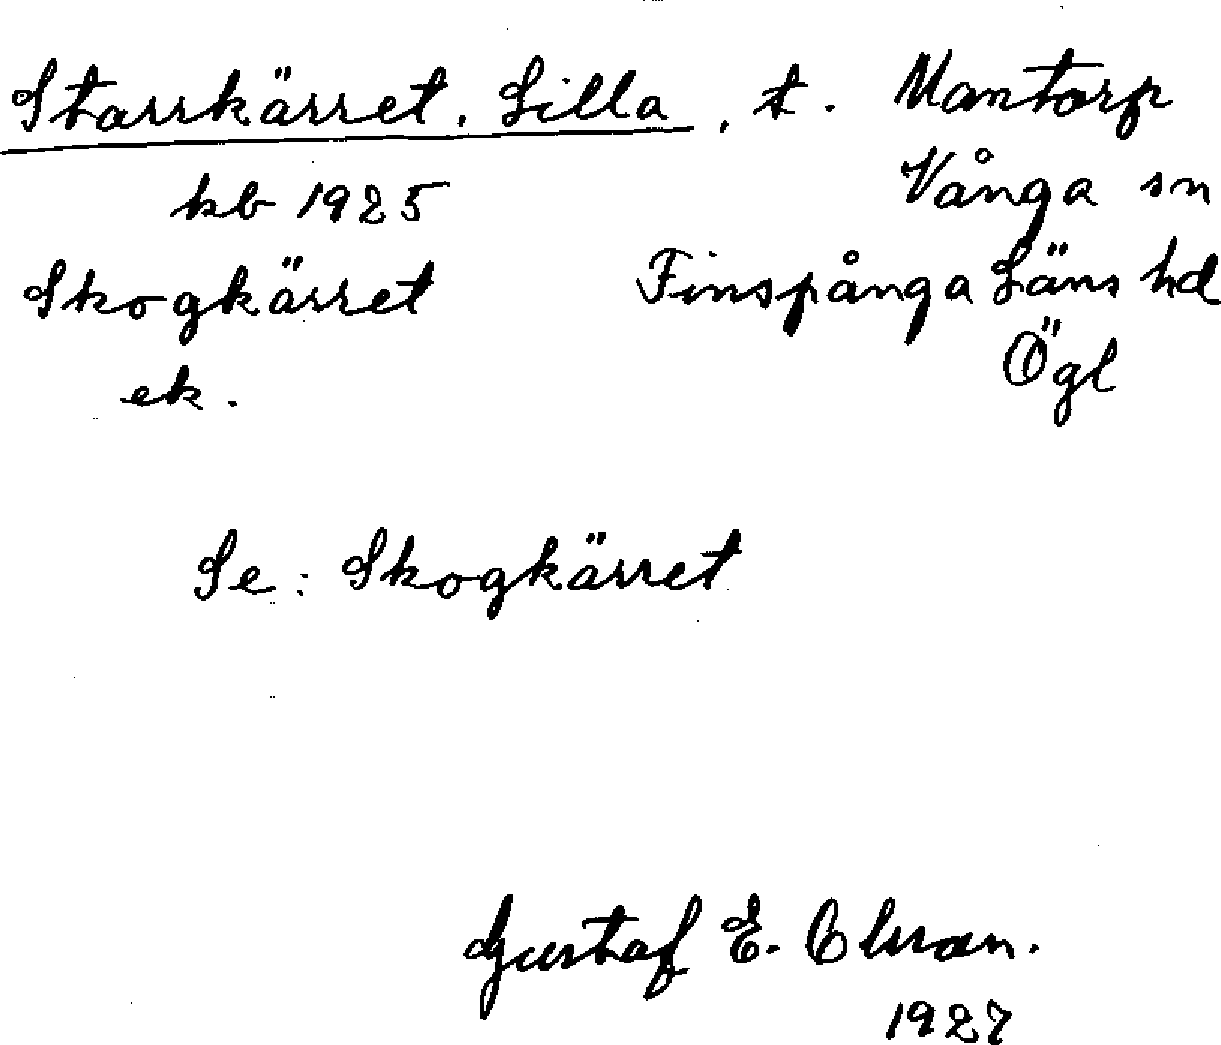 Starrkärret, Lilla, t. Mantorp
kb 1925 Vånga sn
Skogkärret Finspånga Läns hd
ek. Ögl
Se: Skogkärret
Gustaf E. Olsson.
1927